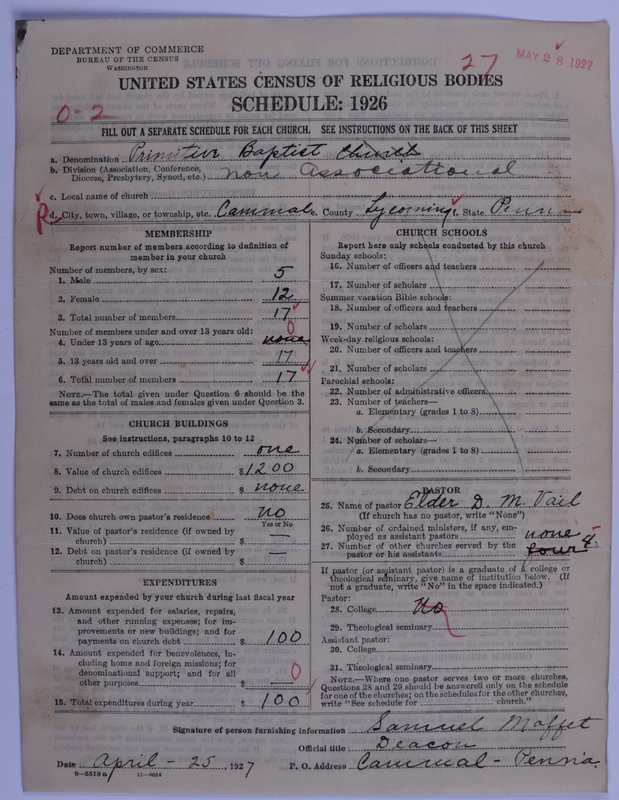 DEPARTMENT OF COMMERCE
BUREAU OF THE CENSUS
WASHINGTON
27
MAY 28 1927
UNITED STATES CENSUS OF RELIGIOUS BODIES
0-2
SCHEDULE: 1926
FILL OUT A SEPARATE SCHEDULE FOR EACH CHURCH. SEE INSTRUCTIONS ON THE BACK OF THIS SHEET
a. Denomination Primitive Baptist Church
b. Division (Association, Conference, Diocese, Presbytery, Synod, etc.) non Associational
c. Local name of church
R
d. City, town, village, or township, etc. Cammal e. County Lycoming f. State Penna
MEMBERSHIP
Report number of members according to definition of member in your church
Number of members, by sex:
1. Male 5
2. Female 12
3. Total number of members 17
Number of members under and over 13 years old: 0
4. Under 13 years of age none
5. 13 years old and over 17
6. Total number of members 17
NOTE.—The total given under Question 6 should be the same as the total of males and females given under Question 3.
CHURCH BUILDINGS
See instructions, paragraphs 10 to 12
7. Number of church edifices one
8. Value of church edifices $1200
9. Debt on church edifices $ none
10. Does church own pastor's residence no
Yes or No
11. Value of pastor's residence (if owned by church) $ —
12. Debt on pastor's residence (if owned by church) $ —
EXPENDITURES
Amount expended by your church during last fiscal year
13. Amount expended for salaries, repairs, and other running expenses; for improvements or new buildings; and for payments on church debt $ 100
14. Amount expended for benevolences, including home and foreign missions; for denominational support; and for all other purposes $ 0
15. Total expenditures during year $ 100
CHURCH SCHOOLS
Report here only schools conducted by this church
Sunday schools:
16. Number of officers and teachers
17. Number of scholars
Summer vacation Bible schools:
18. Number of officers and teachers
19. Number of scholars
Week-day religious schools:
20. Number of officers and teachers
21. Number of scholars
Parochial schools:
22. Number of administrative officers
23. Number of teachers—
a. Elementary (grades 1 to 8)
b. Secondary
24. Number of scholars—
a. Elementary (grades 1 to 8)
b. Secondary
PASTOR
25. Name of pastor Elder D. M. Vail
(If church has no pastor, write "None")
26. Number of ordained ministers, if any, employed as assistant pastors none
27. Number of other churches served by the pastor or his assistants four 4
If pastor (or assistant pastor) is a graduate of a college or theological seminary, give name of institution below. (If not a graduate, write "No" in the space indicated.)
Pastor:
28. College No
29. Theological seminary
Assistant pastor:
30. College
31. Theological seminary
NOTE.—Where one pastor serves two or more churches, Questions 28 and 29 should be answered only on the schedule for one of the churches; on the schedules for the other churches, write "See schedule for church."
Signature of person furnishing information Samuel Moffet
Official title Deacon
Date April - 25, 1927 P. O. Address Cammal - Penna.
8-5518a 11-9054